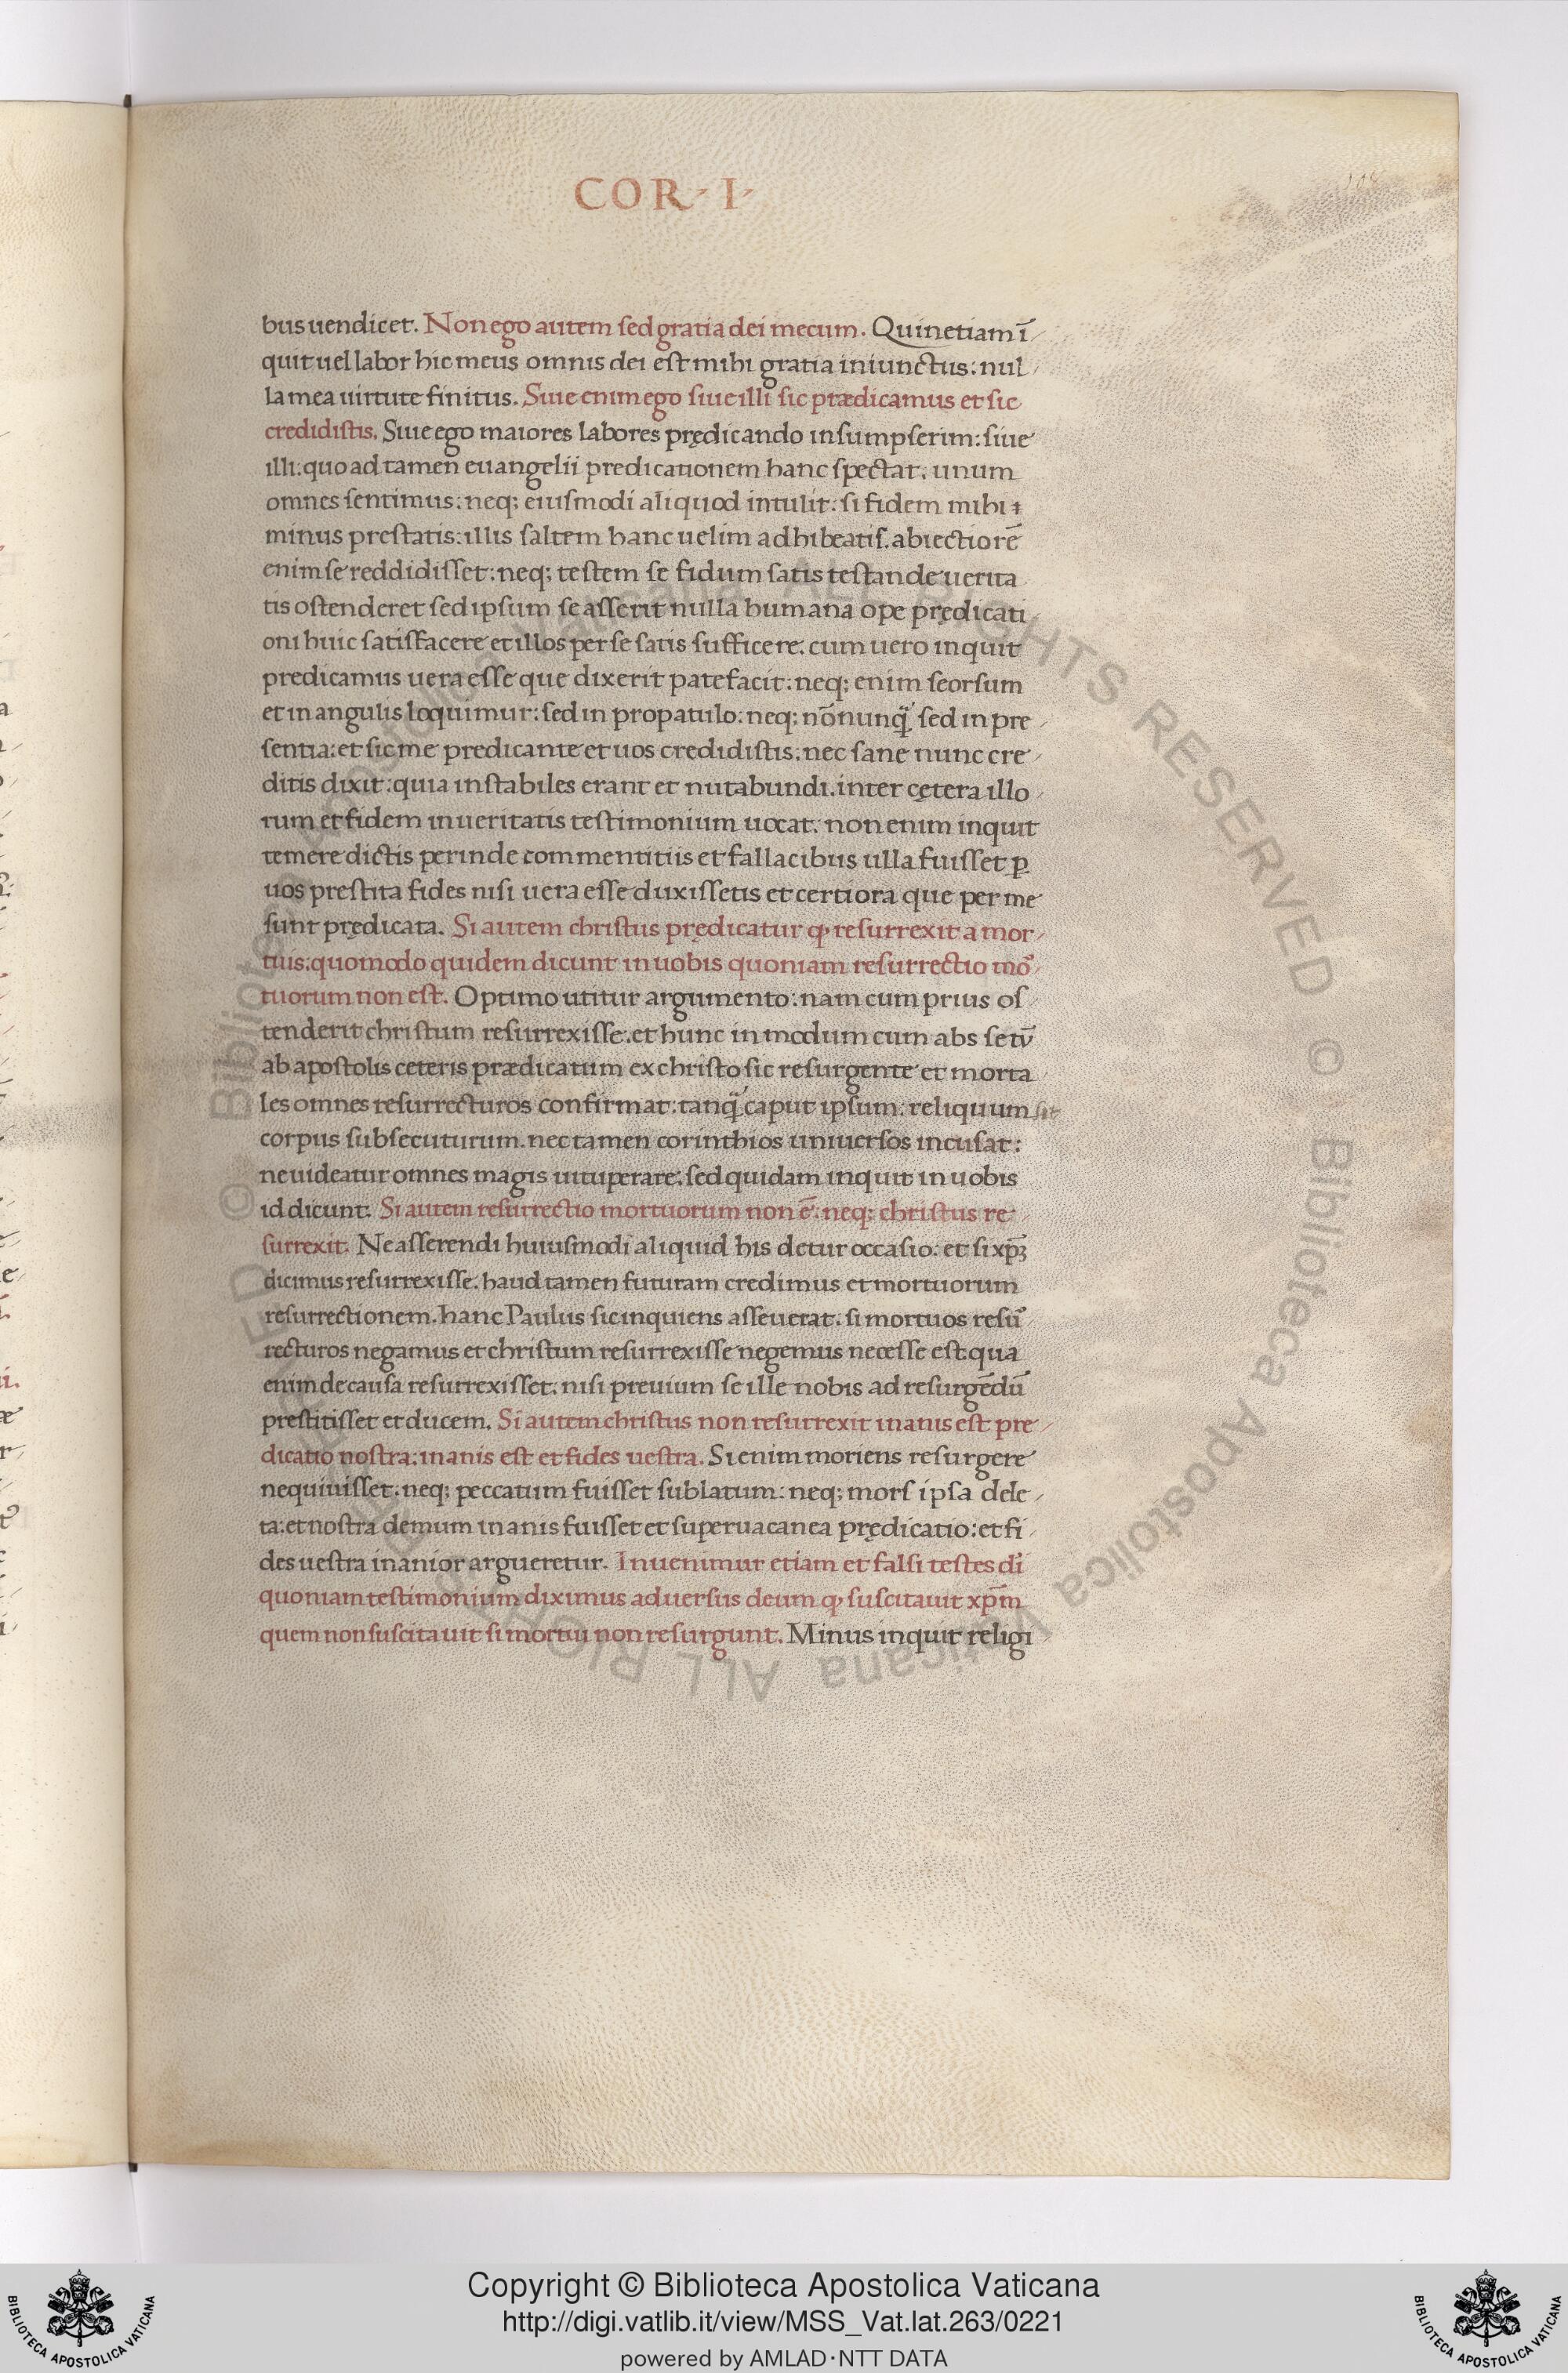 108
COR· I·
bus uendicet. Non ego autem sed gratia dei mecum. Quinetiam ī
quit uel labor hic meus omnis dei est mihi gratia iniunctus: nul
la mea uirtute finitus. Siue enim ego siue illi sic prædicamus et sic
credidistis. Siue ego maiores labores prędicando insumpserim: siue
illi: quo ad tamen euangelii predicationem hanc spectat. unum
omnes sentimus: neq; eiusmodi aliquod intulit: si fidem mihi
minus prestatis: illis saltem hanc uelim adhibeatis. abiectiorē
enim se reddidisset: neq; testem se fidum satis testande uerita
tis ostenderet sed ipsum se asserit nulla humana ope prędicati
oni huic satisfacere et illos per se satis sufficere. cum uero inquit
predicamus uera esse que dixerit patefacit: neq; enim seorsum
et in angulis loquimur: sed in propatulo: neq; nōnunq̄ sed in pre
sentia: et sic me predicante et uos credidistis. nec sane nunc cre
ditis dixit: quia instabiles erant et nutabundi. inter cętera illo
rum et fidem in ueritatis testimonium uocat. non enim inquit
temere dictis perinde commentitiis et fallacibus ulla fuisset ꝑ
uos prestita fides nisi uera esse duxissetis et certiora que per me
sunt prędicata. Si autem christus prędicatur ꝙ resurrexit a mor
tuis: quomodo quidem dicunt in uobis quoniam resurrectio mo᷒
tuorum non est. Optimo utitur argumento: nam cum prius os
tenderit christum resurrexisse. et hunc in modum cum abs se tū
ab apostolis ceteris prædicatum ex christo sic resurgente et morta
les omnes resurrecturos confirmat: tanq̄ caput ipsum: reliquum sit
corpus subsecuturum. nec tamen corinthios uniuersos incusat:
ne uideatur omnes magis uituperare: sed quidam inquit in uobis
id dicunt. Si autem resurrectio mortuorum non ē: neq; christus re
surrexit. Ne asserendi huiusmodi aliquid his detur occasio: et si xp̄ꝫ
dicimus resurrexisse. haud tamen futuram credimus et mortuorum
resurrectionem. hanc Paulus sic inquiens asseuerat. si mortuos resu᷒
recturos negamus et christum resurrexisse negemus necesse est. qua
enim de causa resurrexisset. nisi preuium se ille nobis ad resurgēdū
prestitisset et ducem. Si autem christus non resurrexit inanis est pre
dicatio nostra: inanis est et fides uestra. Si enim moriens resurgere
nequiuisset: neq; peccatum fuisset sublatum: neq; mors ipsa dele
ta: et nostra demum inanis fuisset et superuacanea prędicatio: et fi
des uestra inanior argueretur. Inuenimur etiam et falsi testes di
quoniam testimonium diximus aduersus deum ꝙ suscitauit xp̄m
quem non suscitauit si mortui non resurgunt. Minus inquit religi
Copyright © Biblioteca Apostolica Vaticana
http://digi.vatlib.it/view/MSS_Vat.lat.263/0221
powered by AMLAD·NTT DATA
BIBLIOTECA APOSTOLICA VATICANA
BIBLIOTECA APOSTOLICA VATICANA